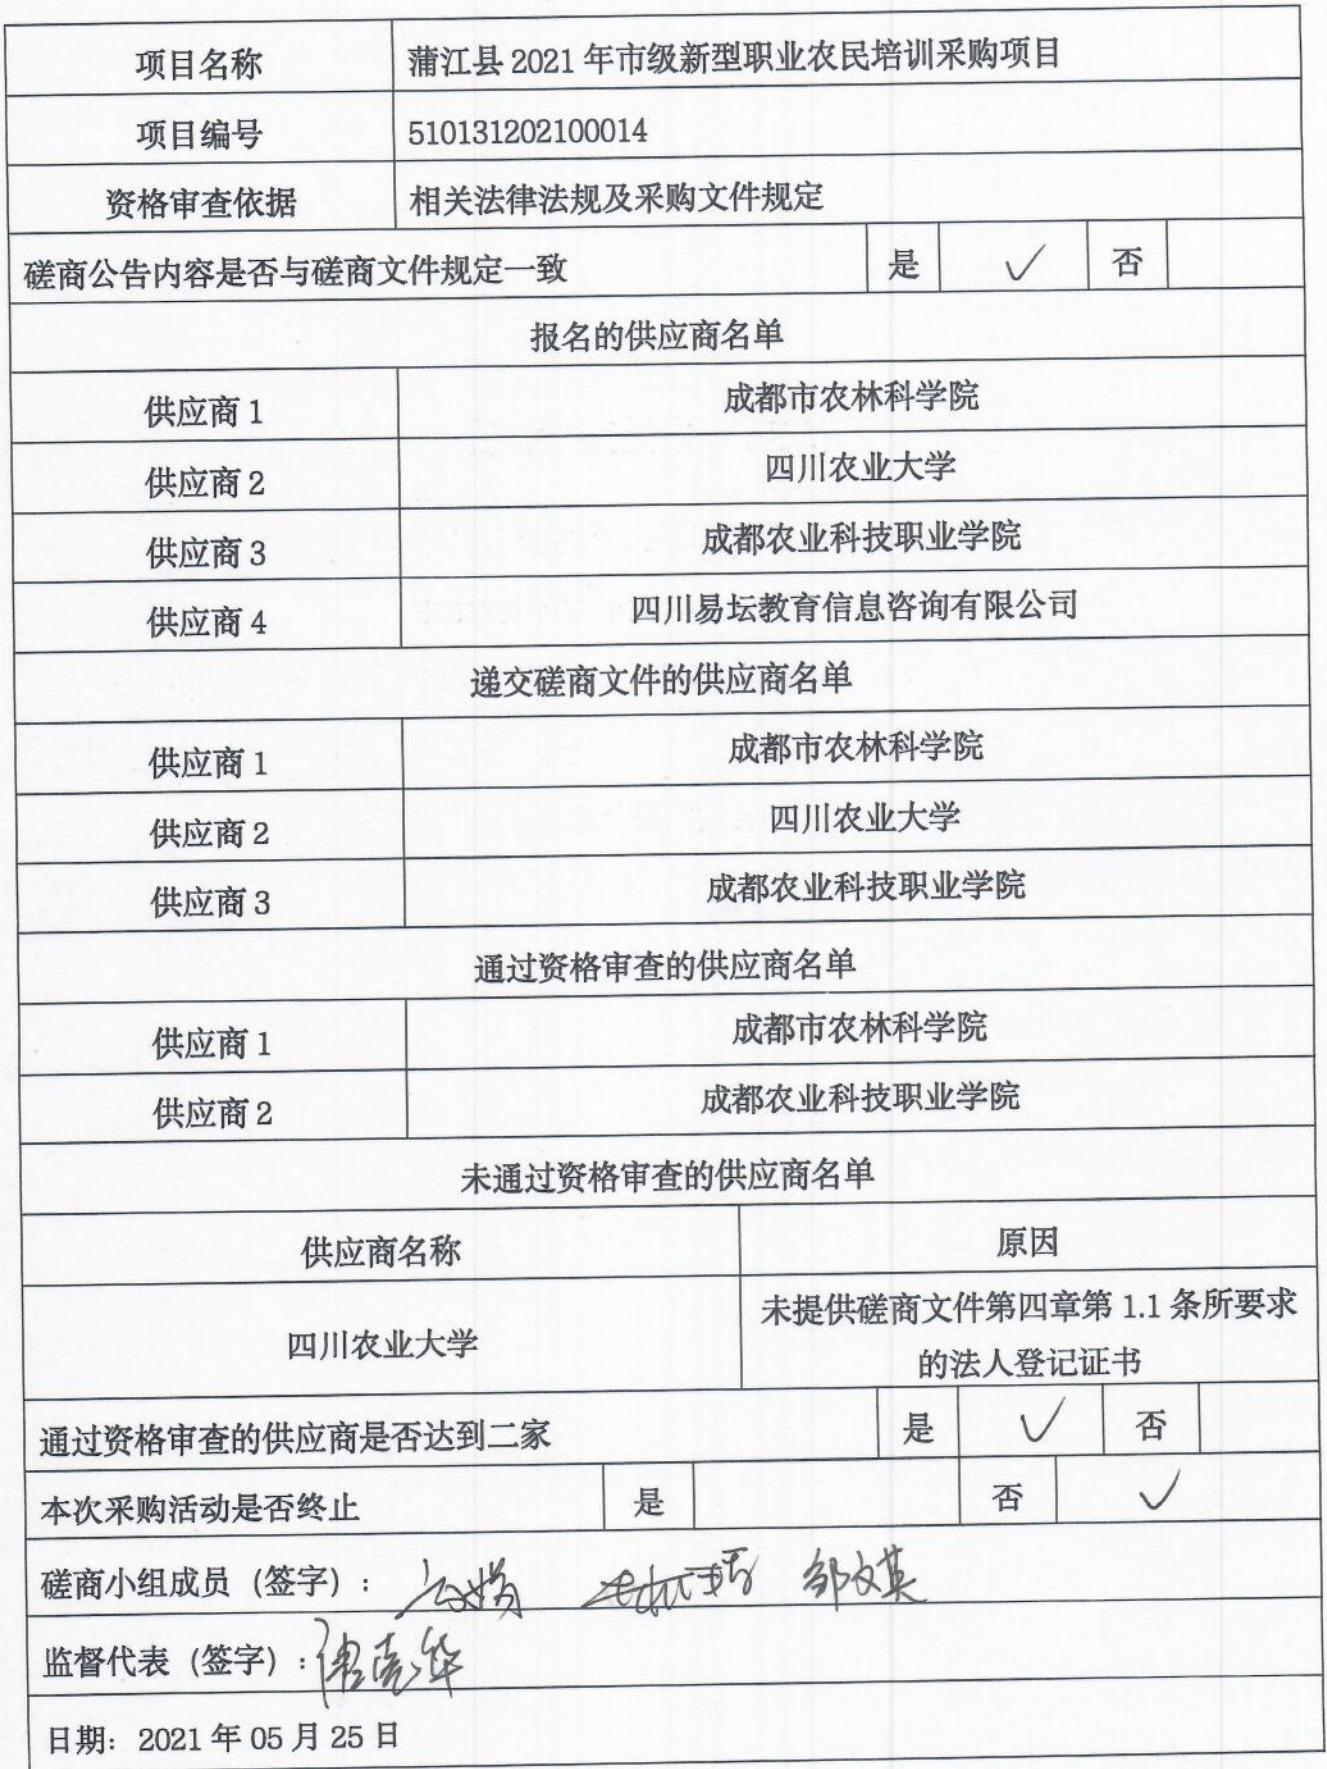 项目名称 蒲江县 2021 年市级新型职业农民培训采购项目
项目编号 510131202100014
资格审查依据 相关法律法规及采购文件规定
磋商公告内容是否与磋商文件规定一致 是 ✓ 否
报名的供应商名单
供应商 1 成都市农林科学院
供应商 2 四川农业大学
供应商 3 成都农业科技职业学院
供应商 4 四川易坛教育信息咨询有限公司
递交磋商文件的供应商名单
供应商 1 成都市农林科学院
供应商 2 四川农业大学
供应商 3 成都农业科技职业学院
通过资格审查的供应商名单
供应商 1 成都市农林科学院
供应商 2 成都农业科技职业学院
未通过资格审查的供应商名单
供应商名称 原因
四川农业大学 未提供磋商文件第四章第 1.1 条所要求
的法人登记证书
通过资格审查的供应商是否达到二家 是 ✓ 否
本次采购活动是否终止 是 否 ✓
磋商小组成员（签字）： 邹文英
监督代表（签字）：
日期： 2021 年 05 月 25 日